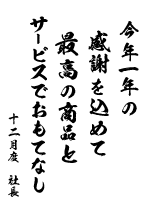 今年一年の
感謝を込めて
最高の商品と
サービスでおもてなし
十二月度 社長